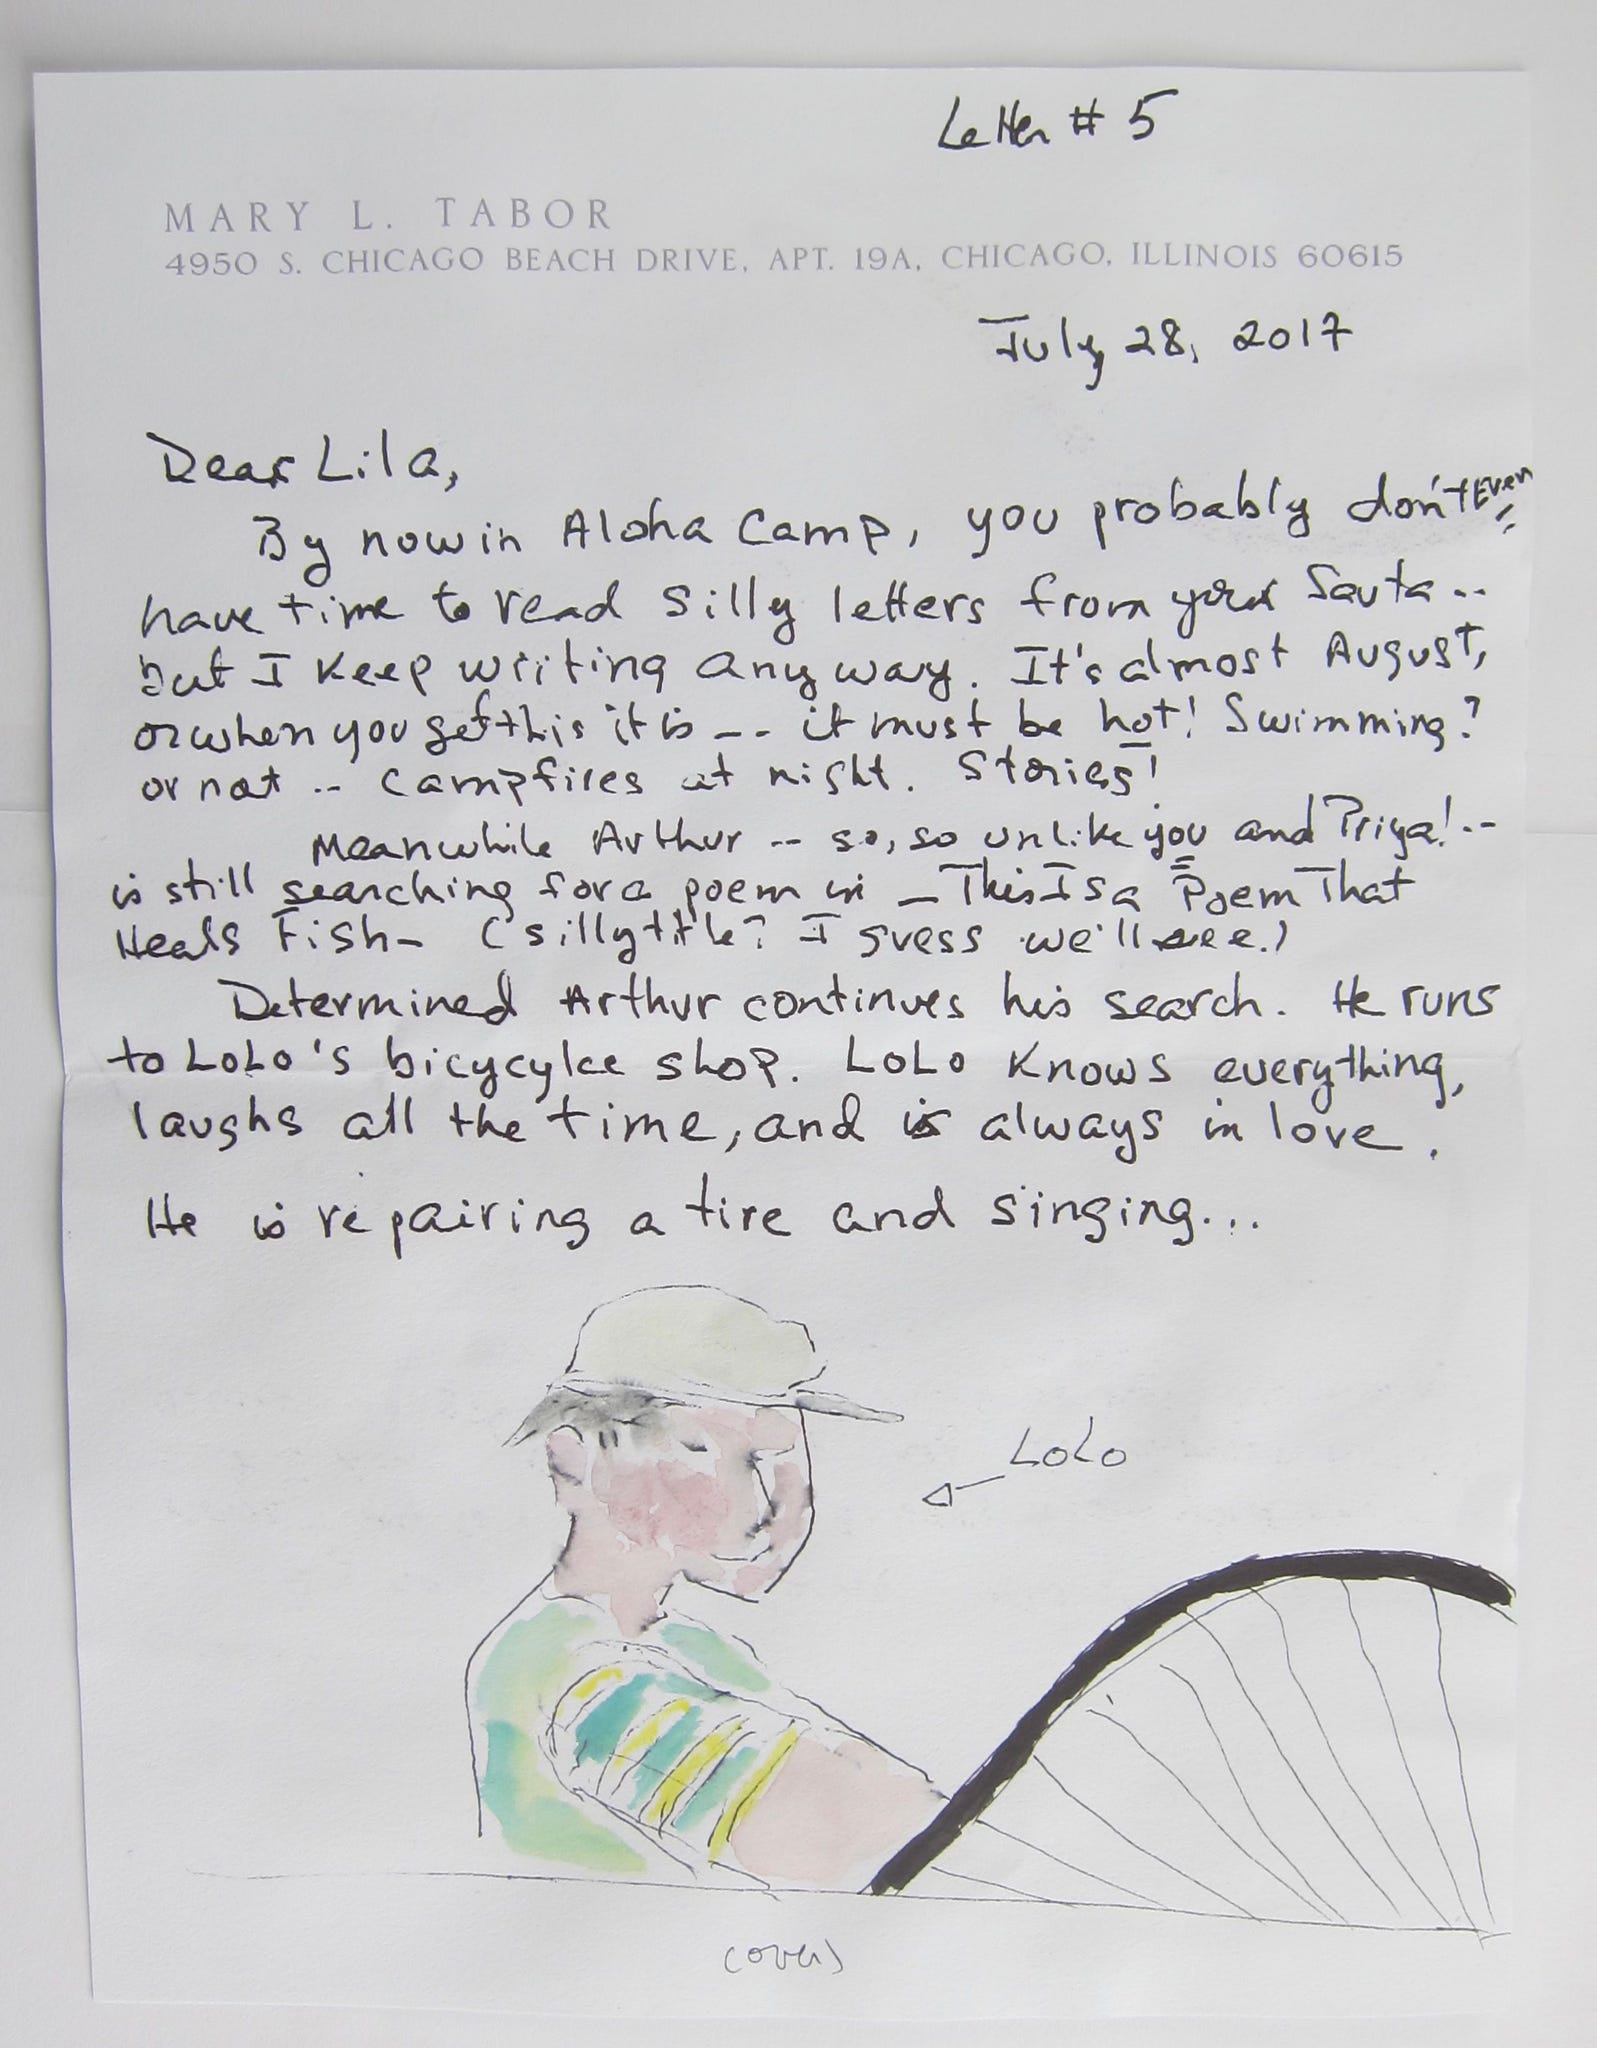 Letter # 5
MARY L. TABOR
4950 S. CHICAGO BEACH DRIVE, APT. 19A, CHICAGO, ILLINOIS 60615
July 28, 2017
Dear Lila,
By now in Aloha Camp, you probably don't Even
have time to read silly letters from your Savta --
but I keep writing anyway. It's almost August,
or when you get this it is -- it must be hot! Swimming?
or not -- campfires at night. Stories!
Meanwhile Arthur -- so, so unlike you and Priya! --
is still searching for a poem in - This Is a Poem That
Heals Fish - (silly title? I guess we'll see.)
Determined Arthur continues his search. He runs
to LoLo's bicycylce shop. LoLo knows everything,
laughs all the time, and is always in love.
He is repairing a tire and singing...
LoLo
(over)